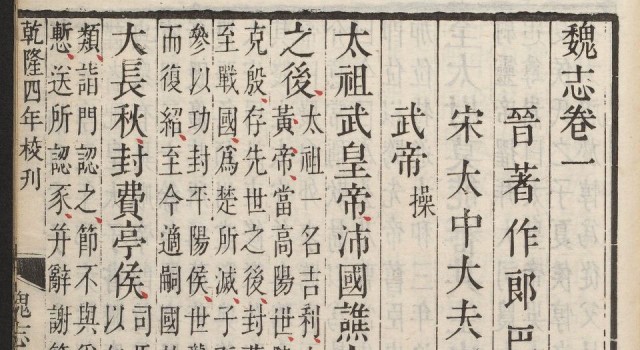 魏志卷一
晉著作郎
宋太中大夫
武帝操
太祖武皇帝沛國譙
之後太祖一名吉利
黃帝當高陽世
克殷存先世之後封
至戰國爲楚所滅子
參以功封平陽侯世
而復紹至今適嗣國
大長秋封費亭侯司
以
類詣門認之節不與
慙送所認豕并辭謝
乾隆四年校刊
魏志